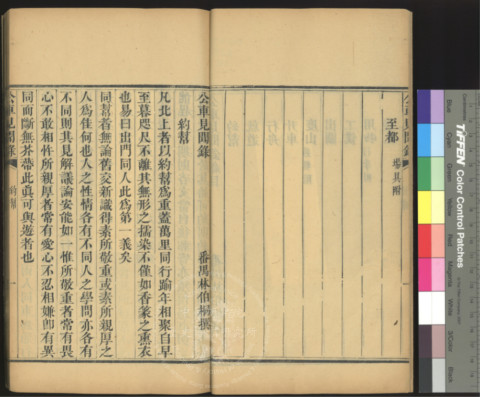 公車見聞錄
至都 場具附
公車見聞錄
番禺林伯桐撰
約幫
凡北上者以約幫為重蓋萬里同行踰年相聚自早
至暮咫尺不離其無形之擩染不僅如香篆之熏衣
也易曰出門同人此為第一義矣
同幫者無論舊交新識得素所敬重或素所親厚之
人為佳何也人之性情各有不同人之學問亦各有
不同則其見解議論安能如一惟所敬重者常有畏
心不敢相忤所親厚者常有愛心不忍相嫌即有異
同而斷無芥蒂此真可與遊者也
公車見聞錄
約幫
TIFFEN Color Control Patches
Blue
Cyan
Green
Yellow
Red
Magenta
White
3/Color
Black